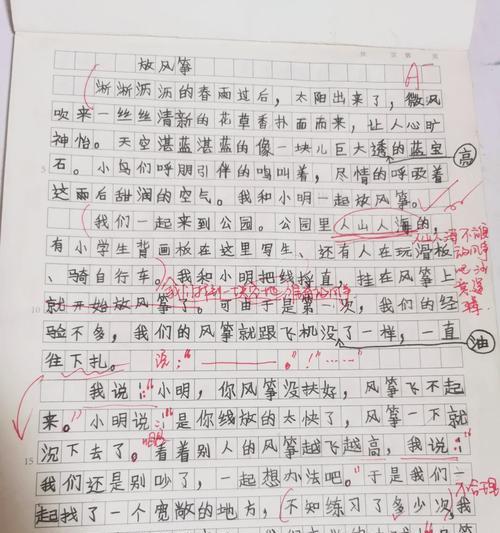 A-
放风筝
淅淅沥沥的春雨过后，太阳出来了，微风
吹来一丝丝清新的花草香扑面而来，让人心旷
神怡。天空湛蓝湛蓝的像一块儿巨大透的蓝宝
高
石。小鸟们呼朋引伴的鸣叫着，尽情的呼吸着
5
这雨后甜润的空气。我和小明一起放风筝。
我们一起来到公园。公园里人山人海的，
人山人海不
有小学生背画板在这里写生、还有人在玩滑板
、骑自行车。我和小明把线捋直，挂在风筝上
我们找到一块空地
就开始放风筝了。可由于是第一次，我们的经
10
验不多，我们的风筝就跟飞机没了一样，一直
油
往下扎。
说：“
我说：“小明，你风筝没扶好，风筝飞不起
来。”小明说：“是你线放的太快了，风筝一下就
沉下去了。看着别人的风筝越飞越高，我说：“
15
我们还是别吵了，一起想办法吧。于是我们一
不合理
起找了一个宽敞的地方，不知练习了多少次，我